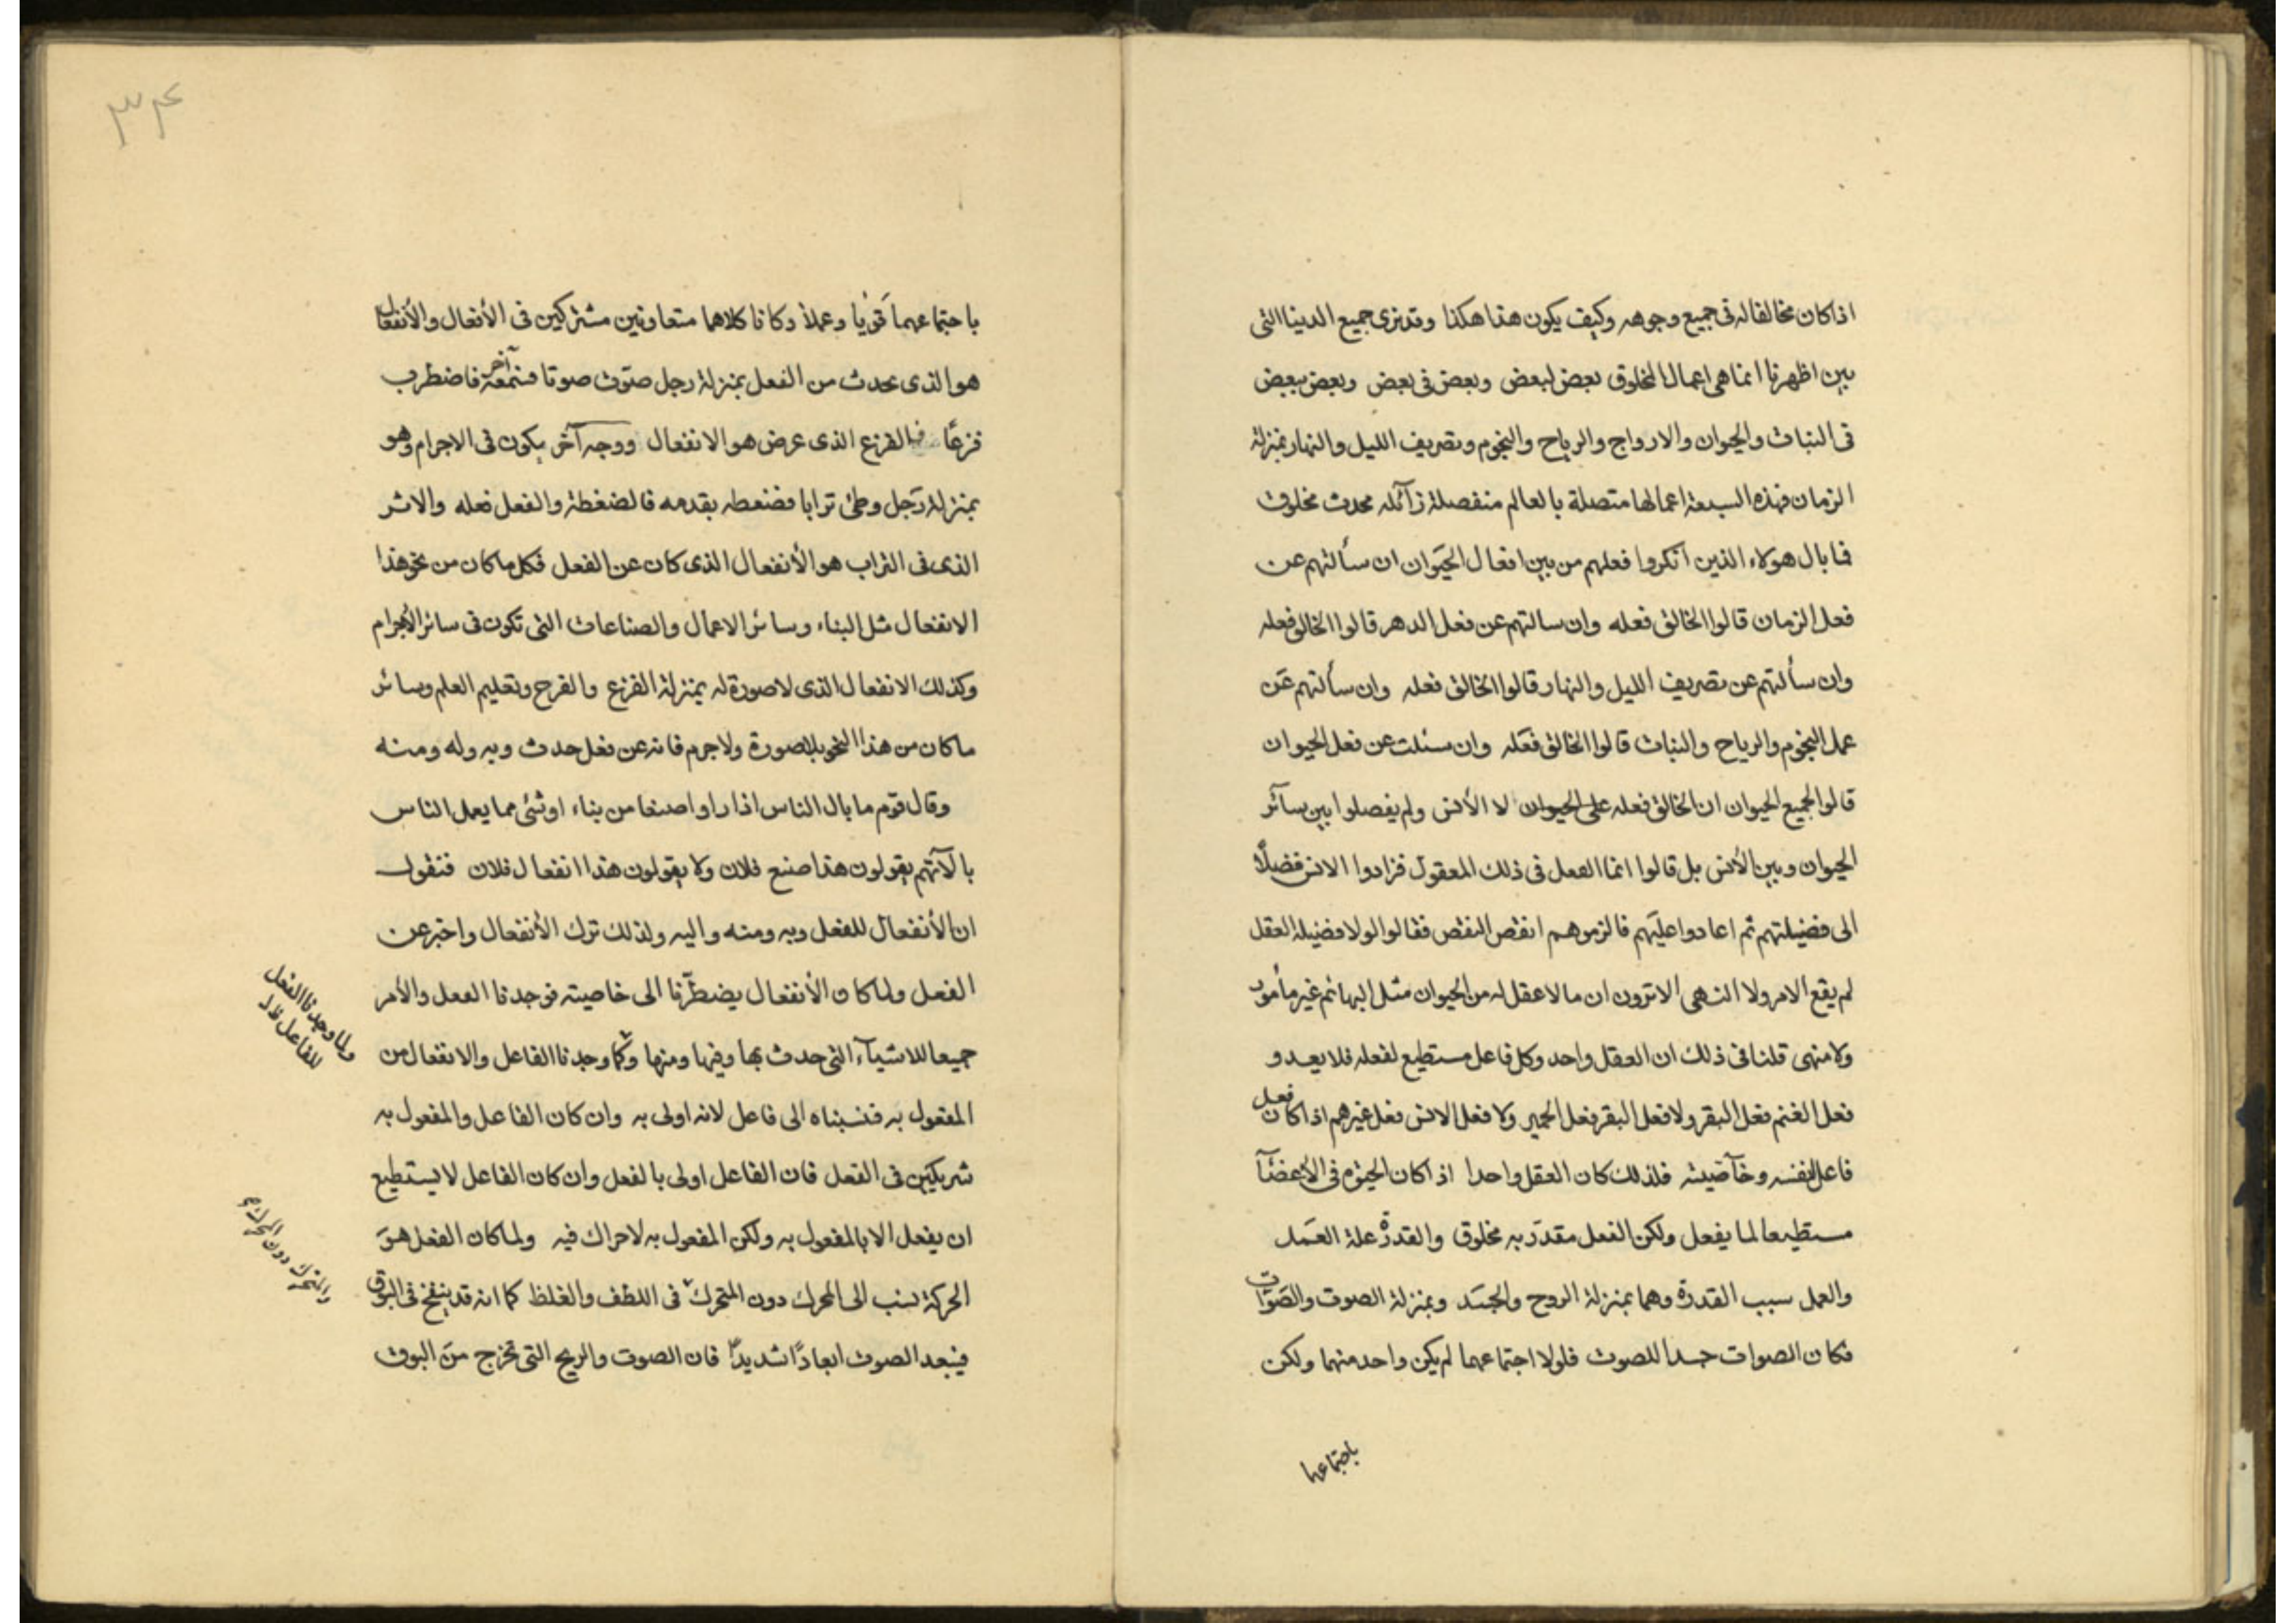 اذا كان مخالفا له فى جميع وجوهه وكيف يكون هذا هكذا وقد نرى جميع الدنيا التى
بين اظهرنا انما هى اعمال المخلوق بعض لبعض وبعض فى بعض وبعض ببعض
فى النبات والحيوان والارواح والرياح والنجوم وتصريف الليل والنهار بمنزلة
الزمان فهذه السبعة اعمالها متصلة بالعالم منفصلة زآئله محدث مخلوق
فما بال هولاء الذين انكروا فعلهم من بين افعال الحيوان ان سألتهم عن
فعل الزمان قالوا الخالق فعله وان سالتهم عن فعل الدهر قالوا الخالق فعله
وان سألتهم عن تصريف الليل والنهار قالوا الخالق فعله وان سألتهم عن
عمل النجوم والرياح والنبات قالوا الخالق فعله وان سئلت عن فعل الحيوان
قالوا لجميع الحيوان ان الخالق فعله على الحيوان لا الأنس ولم يفصلوا بين سآئر
الحيوان وبين الأنس بل قالوا انما الفعل فى ذلك المعقول فزادوا الانس فضلًا
الى فضيلتهم ثم اعادوا عليهم فالزموهم انقص النقص فقالوا لولا فضيلة العقل
لم يقع الامر ولا النهى الا ترون ان ما لا عقل له من الحيوان مثل البهائم غير مأمور
ولا منهى قلنا فى ذلك ان العقل واحد وكل فاعل مستطيع لفعله فلا يعدو
فعل الغنم فعل البقر ولا فعل البقر فعل الحمير ولا فعل الانس فعل غيرهم اذا كان فعل
فاعل لنفسه وخآصيته فلذلك كان العقل واحدا اذا كان الحيثوم فى الأعضآ
مستطيعا لما يفعل ولكن الفعل مقدر به مخلوق والقدرة علة العمل
والعمل سبب القدرة وهما بمنزلة الروح والجسد وبمنزلة الصوت والصوات
فكان الصوات جسدا للصوت فلولا اجتماعهما لم يكن واحد منهما ولكن
باجتماعهما
٣٤
باجتماعهما قويا وعملا وكانا كلاهما متعاونين مشتركين فى الأفعال والأنفعال
هو الذى يحدث من الفعل بمنزلة رجل صوّت صوتا فسمعه آخر فاضطرب
فزعًا فالفزع الذى عرض هو الانفعال ووجه آخر يكون فى الاجرام وهو
بمنزلة رجل وطئ ترابا فضغطه بقدمه فالضغطة والفعل فعله والاثر
الذى فى التراب هو الأنفعال الذى كان عن الفعل فكل ما كان من نحو هذا
الانفعال مثل البناء وسائر الاعمال والصناعات التى تكون فى سائر الأجرام
وكذلك الانفعال الذى لا صورة له بمنزلة الفزع والفرح وتعليم العلم وسائر
ما كان من هذا النحو بلا صورة ولا جرم فانه عن فعل حدث وبه وله ومنه
وقال قوم ما بال الناس اذا راوا صنعا من بناء او شئ مما يعمل الناس
بالآتهم يقولون هذا صنع فلان ولا يقولون هذا انفعال فلان فنقول
ان الأنفعال للفعل وبه ومنه واليه ولذلك ترك الأنفعال واخبر عن
الفعل ولما كان الأنفعال يضطرّنا الى خاصيته فوجدنا الفعل والأمر
جميعا للاشيآء التى حدث بها وفيها ومنها وكما وجدنا الفاعل والانفعال من
المفعول به فنسبناه الى فاعل لانه اولى به وان كان الفاعل والمفعول به
شريكين فى الفعل فان الفاعل اولى بالفعل وان كان الفاعل لا يستطيع
ان يفعل الا بالمفعول به ولكن المفعول به لا حراك فيه ولما كان الفعل هو
الحركة نسب الى المحرك دون المتحرك فى اللطف والغلظ كما انه قد ينفخ فى البوق
فيبعد الصوت ابعادًا شديدًا فان الصوت والريح التى تخرج من البوق
ولما وجدنا الفعل
للفاعل
والمتحرك دون المحرك